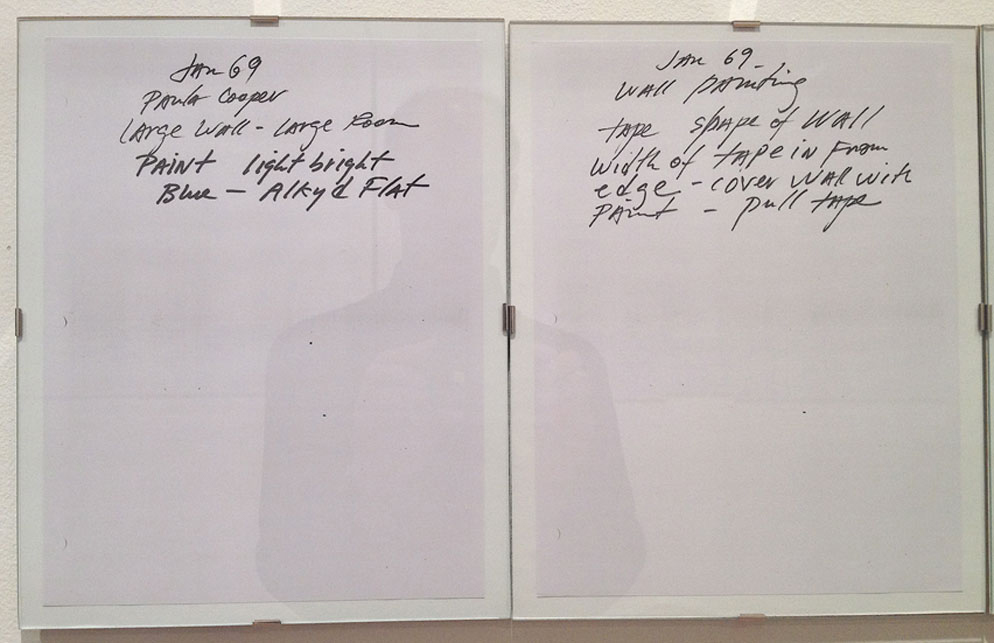 Jan 69
Paula Cooper
Large Wall - Large Room
PAINT light bright
Blue - Alkyd Flat
Jan 69-
Wall painting
tape shape of Wall
width of tape in From
edge - cover wall with
Paint - pull tape